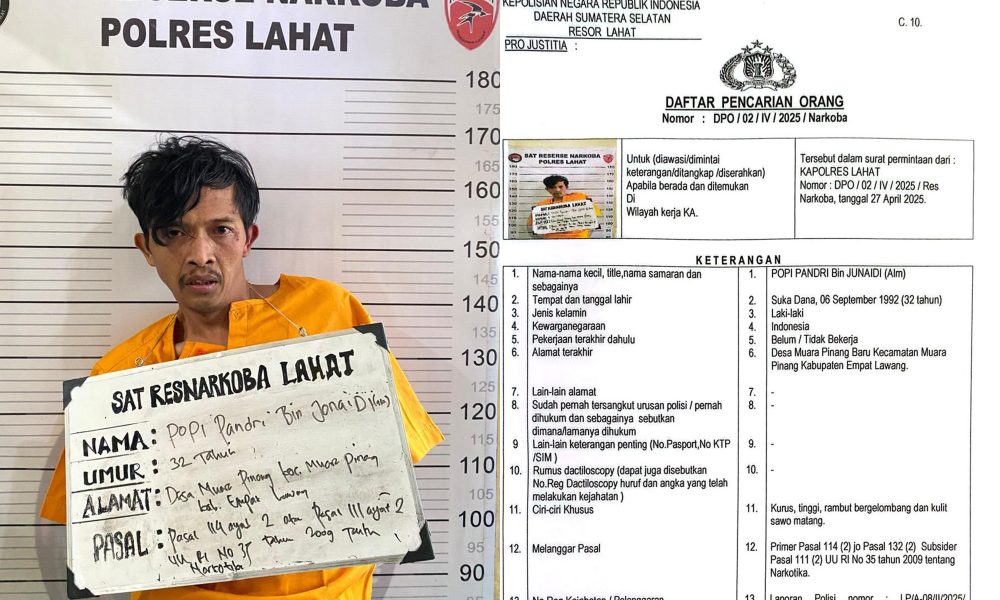 RESERSE NARKOBA
POLRES LAHAT
180
175
170
165
160
150
145
140
135
130
125
120
115
110
105
100
95
90
SAT RESNARKOBA LAHAT
NAMA : POPI Pandri Bin JonaiDi (alm)
UMUR : 32 Tahun
ALAMAT : Desa Muara Pinang kec. Muara Pinang
kab. Empat Lawang
PASAL : Pasal 114 ayat 2 atau Pasal 111 ayat 2
UU RI No 35 tahun 2009 Tentang
Narkotika
KEPOLISIAN NEGARA REPUBLIK INDONESIA
DAERAH SUMATERA SELATAN
RESOR LAHAT
PRO JUSTITIA :
C. 10.
DAFTAR PENCARIAN ORANG
Nomor : DPO / 02 / IV / 2025 / Narkoba
SAT RESERSE NARKOBA
POLRES LAHAT
Untuk (diawasi/dimintai
keterangan/ditangkap /diserahkan)
Apabila berada dan ditemukan
Di
Wilayah kerja KA.
Tersebut dalam surat permintaan dari :
KAPOLRES LAHAT
Nomor : DPO / 02 / IV / 2025 / Res
Narkoba, tanggal 27 April 2025.
KETERANGAN
1. Nama-nama kecil, title,nama samaran dan
sebagainya
1. POPI PANDRI Bin JUNAIDI (Alm)
2. Tempat dan tanggal lahir
2. Suka Dana, 06 September 1992 (32 tahun)
3. Jenis kelamin
3. Laki-laki
4. Kewarganegaraan
4. Indonesia
5. Pekerjaan terakhir dahulu
5. Belum / Tidak Bekerja
6. Alamat terakhir
6. Desa Muara Pinang Baru Kecamatan Muara
Pinang Kabupaten Empat Lawang.
7. Lain-lain alamat
7. -
8. Sudah pernah tersangkut urusan polisi / pernah
dihukum dan sebagainya sebutkan
dimana/lamanya dihukum
8. -
9 Lain-lain keterangan penting (No.Pasport,No KTP
/SIM )
9. -
10. Rumus dactiloscopy (dapat juga disebutkan
No.Reg Dactiloscopy huruf dan angka yang telah
melakukan kejahatan )
10. -
11. Ciri-ciri Khusus
11. Kurus, tinggi, rambut bergelombang dan kulit
sawo matang.
12. Melanggar Pasal
12. Primer Pasal 114 (2) jo Pasal 132 (2) Subsider
Pasal 111 (2) UU RI No 35 tahun 2009 tentang
Narkotika.
13. No.Reg Kejahatan / Pelanggaran
13. Laporan Polisi nomor : LP/A-08/II/2025/